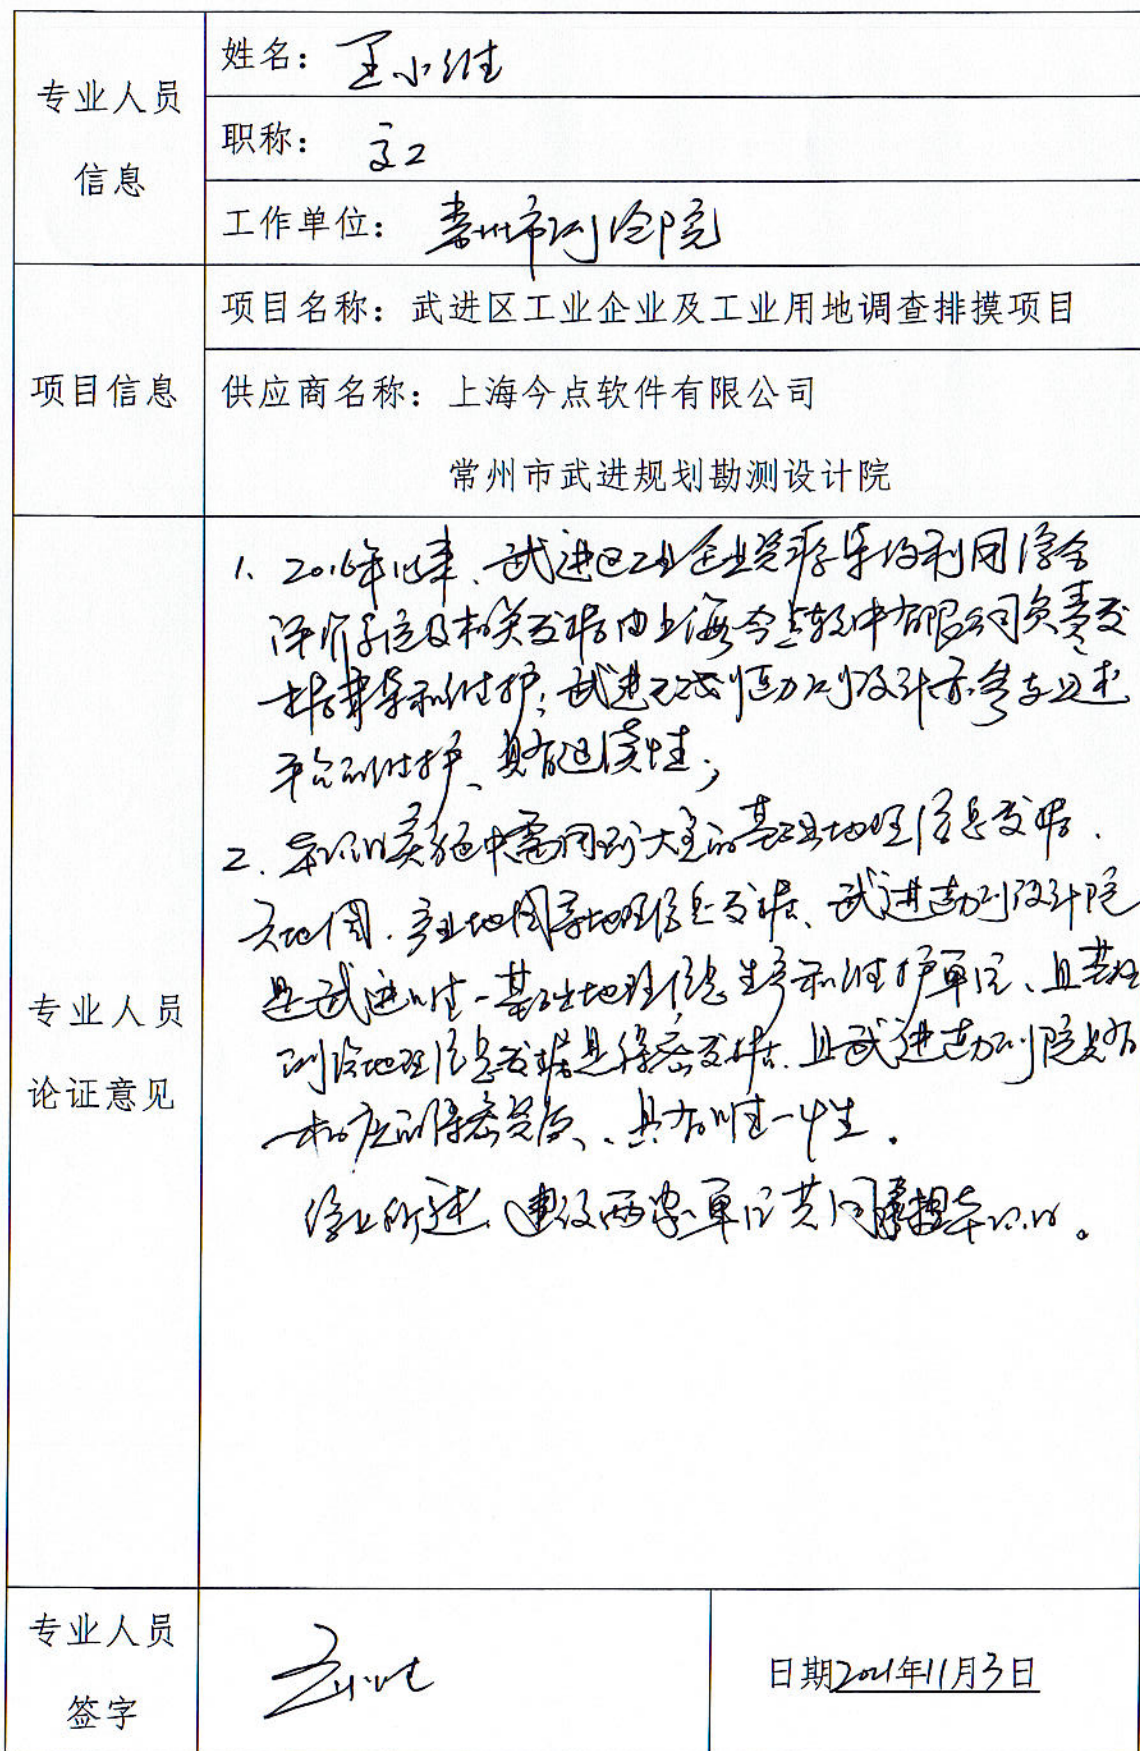 专业人员
信息
姓名：王小维
职称：高工
工作单位：常州市测绘院
项目信息
项目名称：武进区工业企业及工业用地调查排摸项目
供应商名称：上海今点软件有限公司
常州市武进规划勘测设计院
专业人员
论证意见
1、2016年以来、武进区工业企业资源集约利用综合
评价系统及相关数据由上海今点软件有限公司负责数
据集和维护；武进规划勘测设计亦参与上述
平台的维护、具有延续性；
2、本项目实施中需用到大量的基础地理信息数据、
地图、产业地图等地理信息数据、武进勘测设计院
是武进唯一基础地理信息生产和维护单位、且基础
测绘地理信息数据是保密数据、且武进勘测院具有
相应的保密资质、具有唯一性。
综上所述、建议两家单位共同承担本项目。
专业人员
签字
王小维
日期2021年11月3日